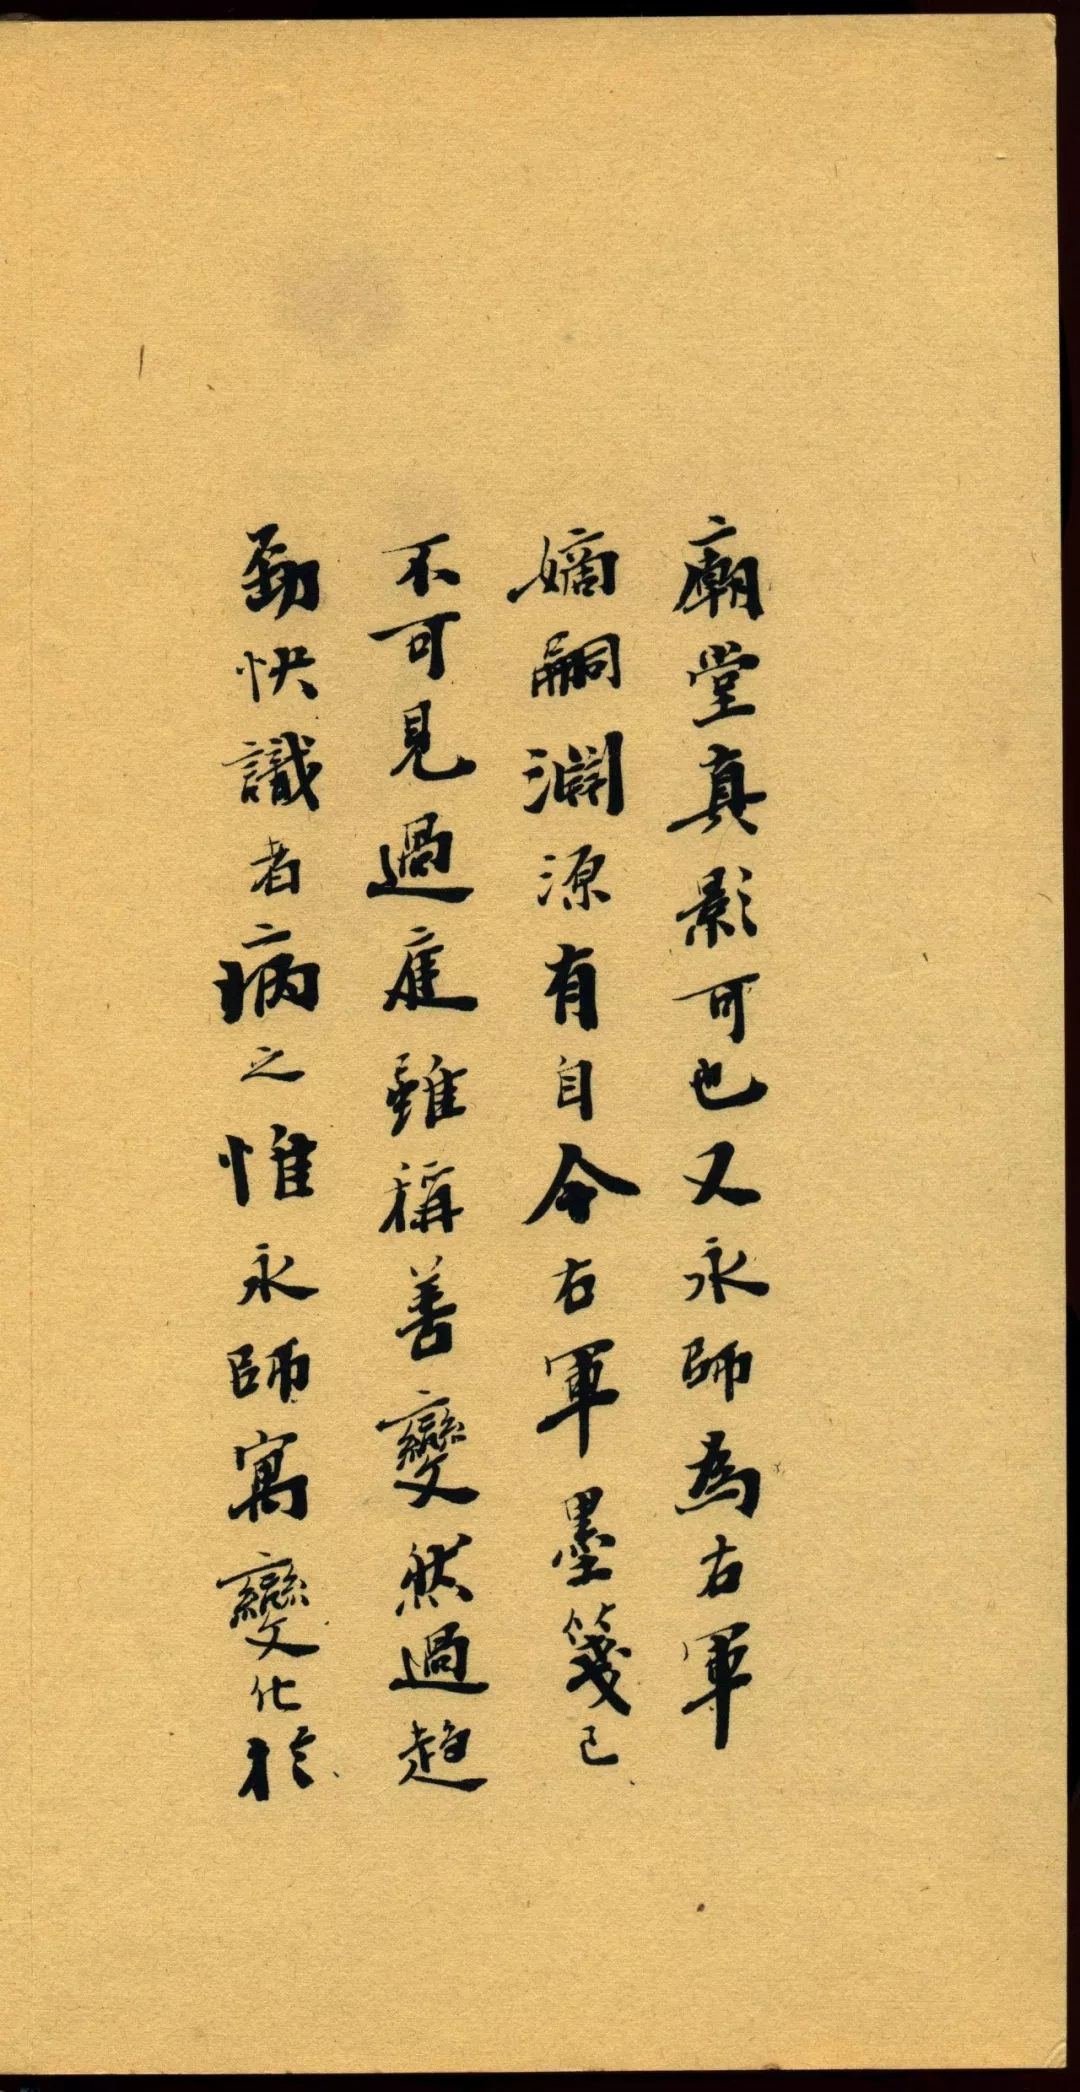 廟堂真影可也又永師為右軍
嫡嗣淵源有自今右軍墨箋已
不可見過庭雖稱善變然過趋
勁快識者病之惟永師寓變化於